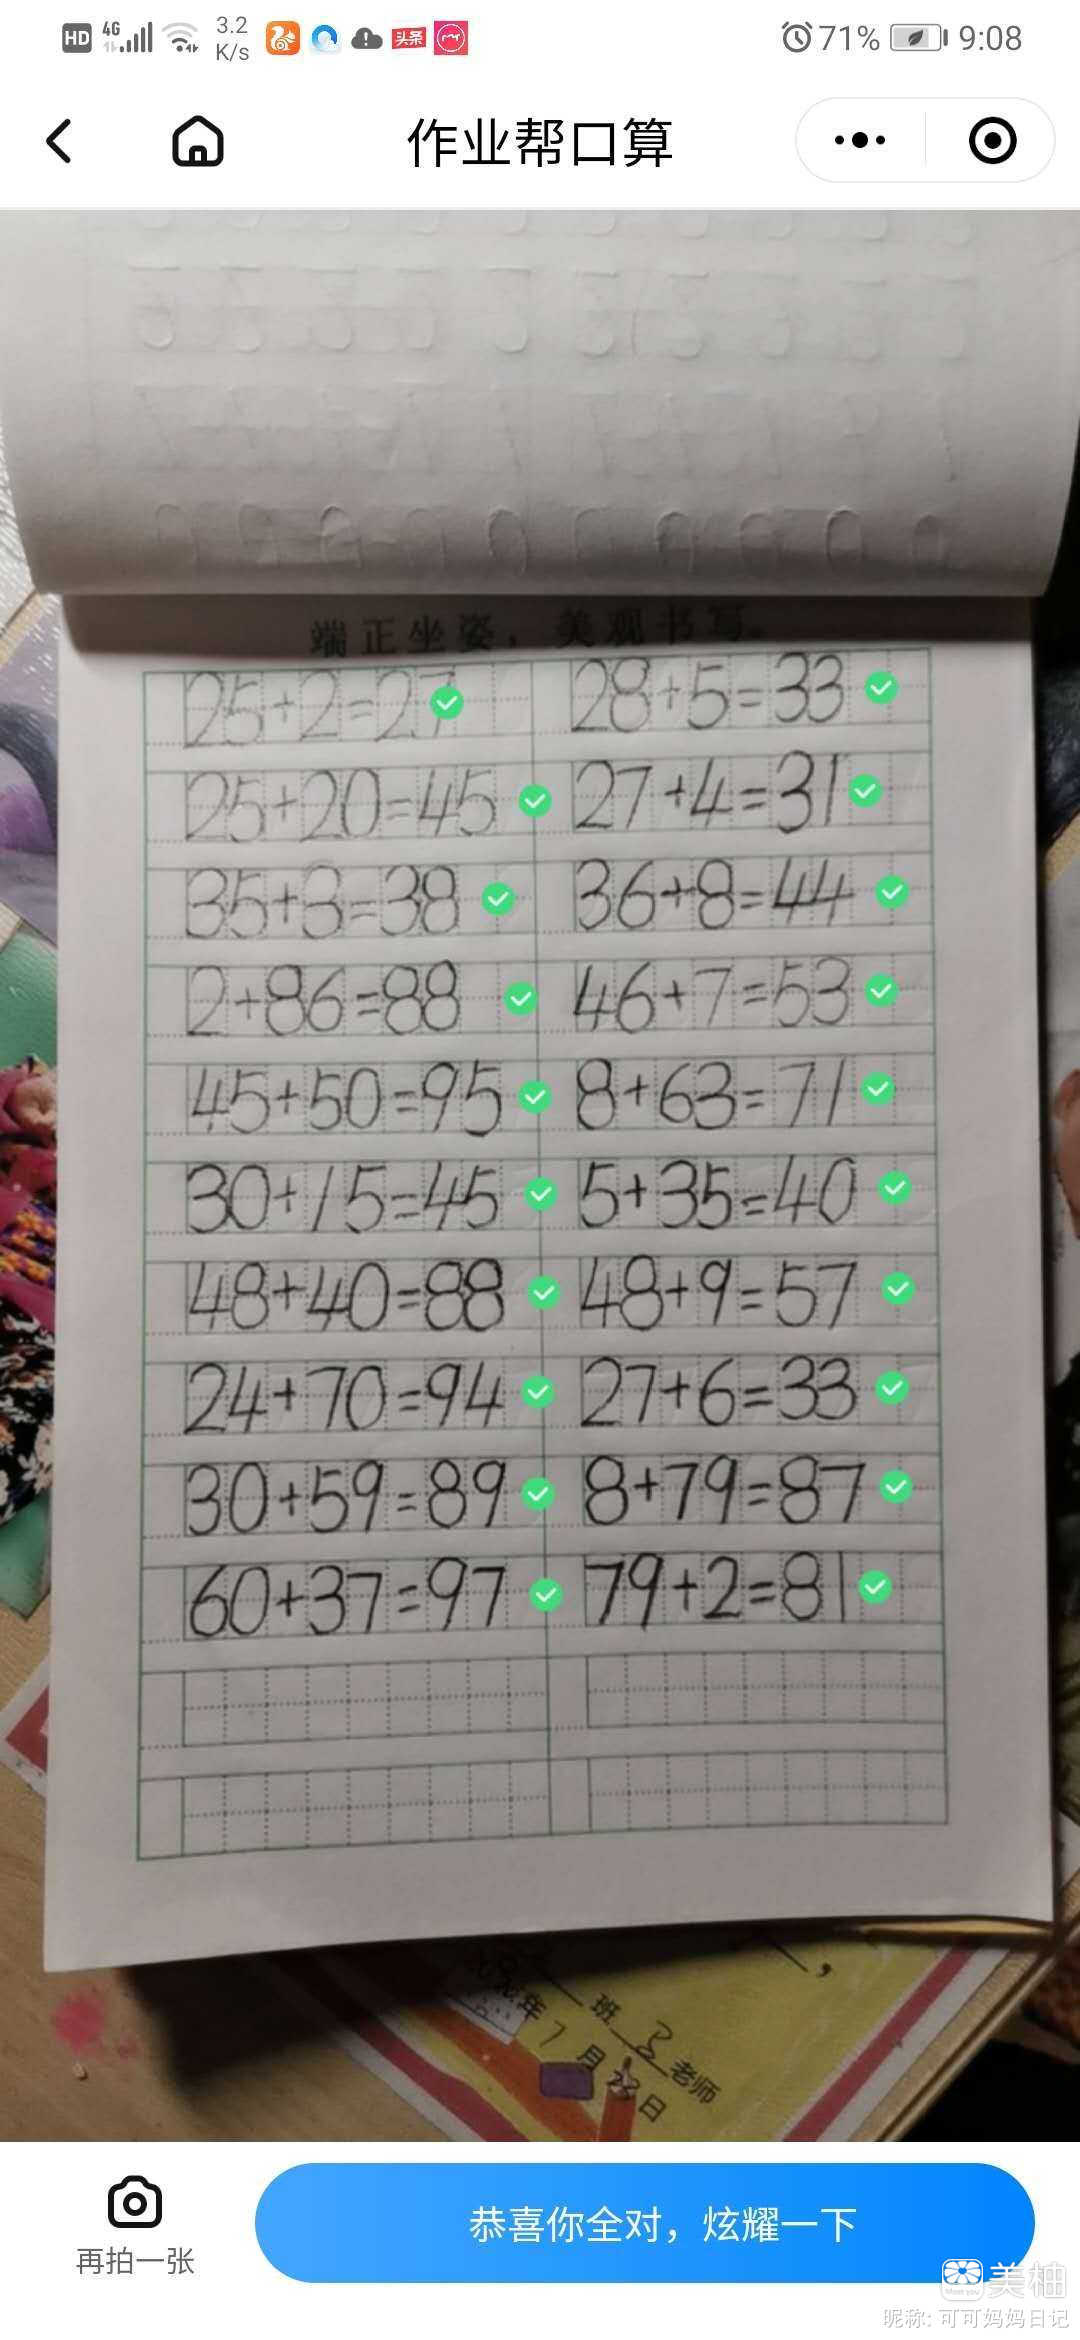 HD 4G 3.2 K/s 头条 71% 9:08
作业帮口算
端正坐姿，美观书写。
25+2=27 28+5=33
25+20=45 27+4=31
35+3=38 36+8=44
2+86=88 46+7=53
45+50=95 8+63=71
30+15=45 5+35=40
48+40=88 48+9=57
24+70=94 27+6=33
30+59=89 8+79=87
60+37=97 79+2=81
班 老师
年7月 日
再拍一张
恭喜你全对，炫耀一下
美柚
昵称: 可可妈妈日记